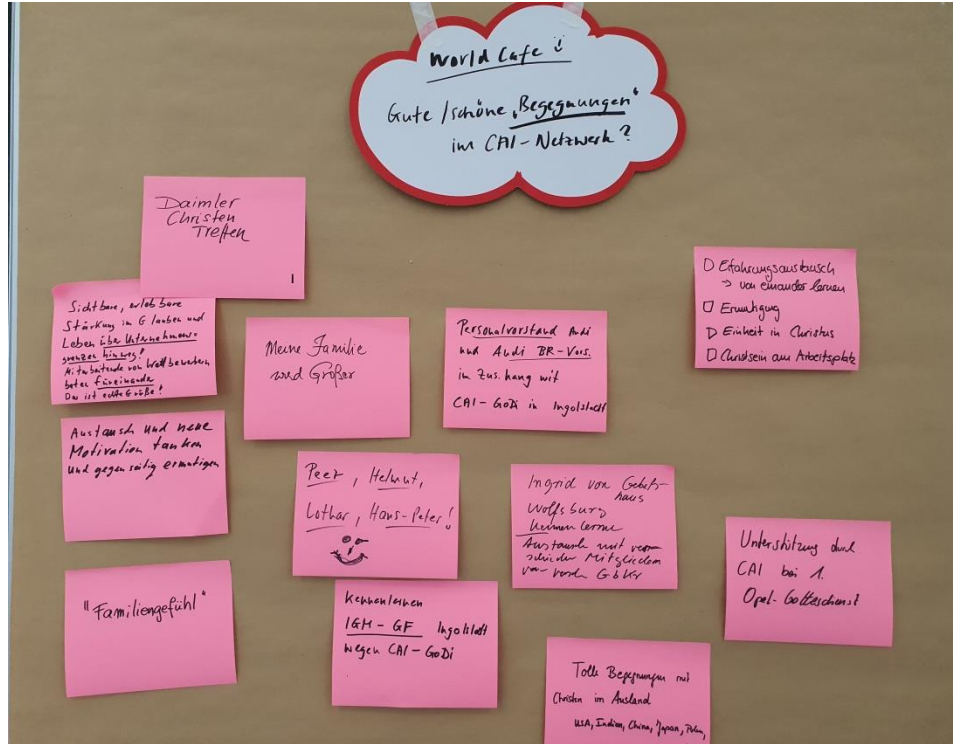 World Cafe
Gute / schöne "Begegnungen"
im CAI-Netzwerk?
Daimler
Christen
Treffen
Sichtbare, erlebbare
Stärkung im Glauben und
Leben über Unternehmens-
grenzen hinweg!
Mitarbeitende von Wettbewerbern
beten füreinander
Das ist echte Größe!
Meine Familie
wird Größer
Personalvorstand Audi
und Audi BR-Vors.
in Zus.hang mit
CAI-GoDi in Ingolstadt
Erfahrungsaustausch
→ von einander lernen
Ermutigung
Einheit in Christus
Christsein am Arbeitsplatz
Austausch und neue
Motivation tanken
und gegenseitig ermutigen
Peer, Helmut,
Lothar, Hans-Peter!
Ingrid von Gebets-
haus
Wolfsburg
kennen lerne
Austausch mit
Mitgliedern
von GbKr
Unterstützung durch
CAI bei 1.
Opel-Gottesdienst
"Familiengefühl"
Kennenlernen
IGM-GF Ingolstadt
wegen CAI-GoDi
Tolle Begegnungen mit
Christen im Ausland
USA, Indien, China, Japan, Polen,